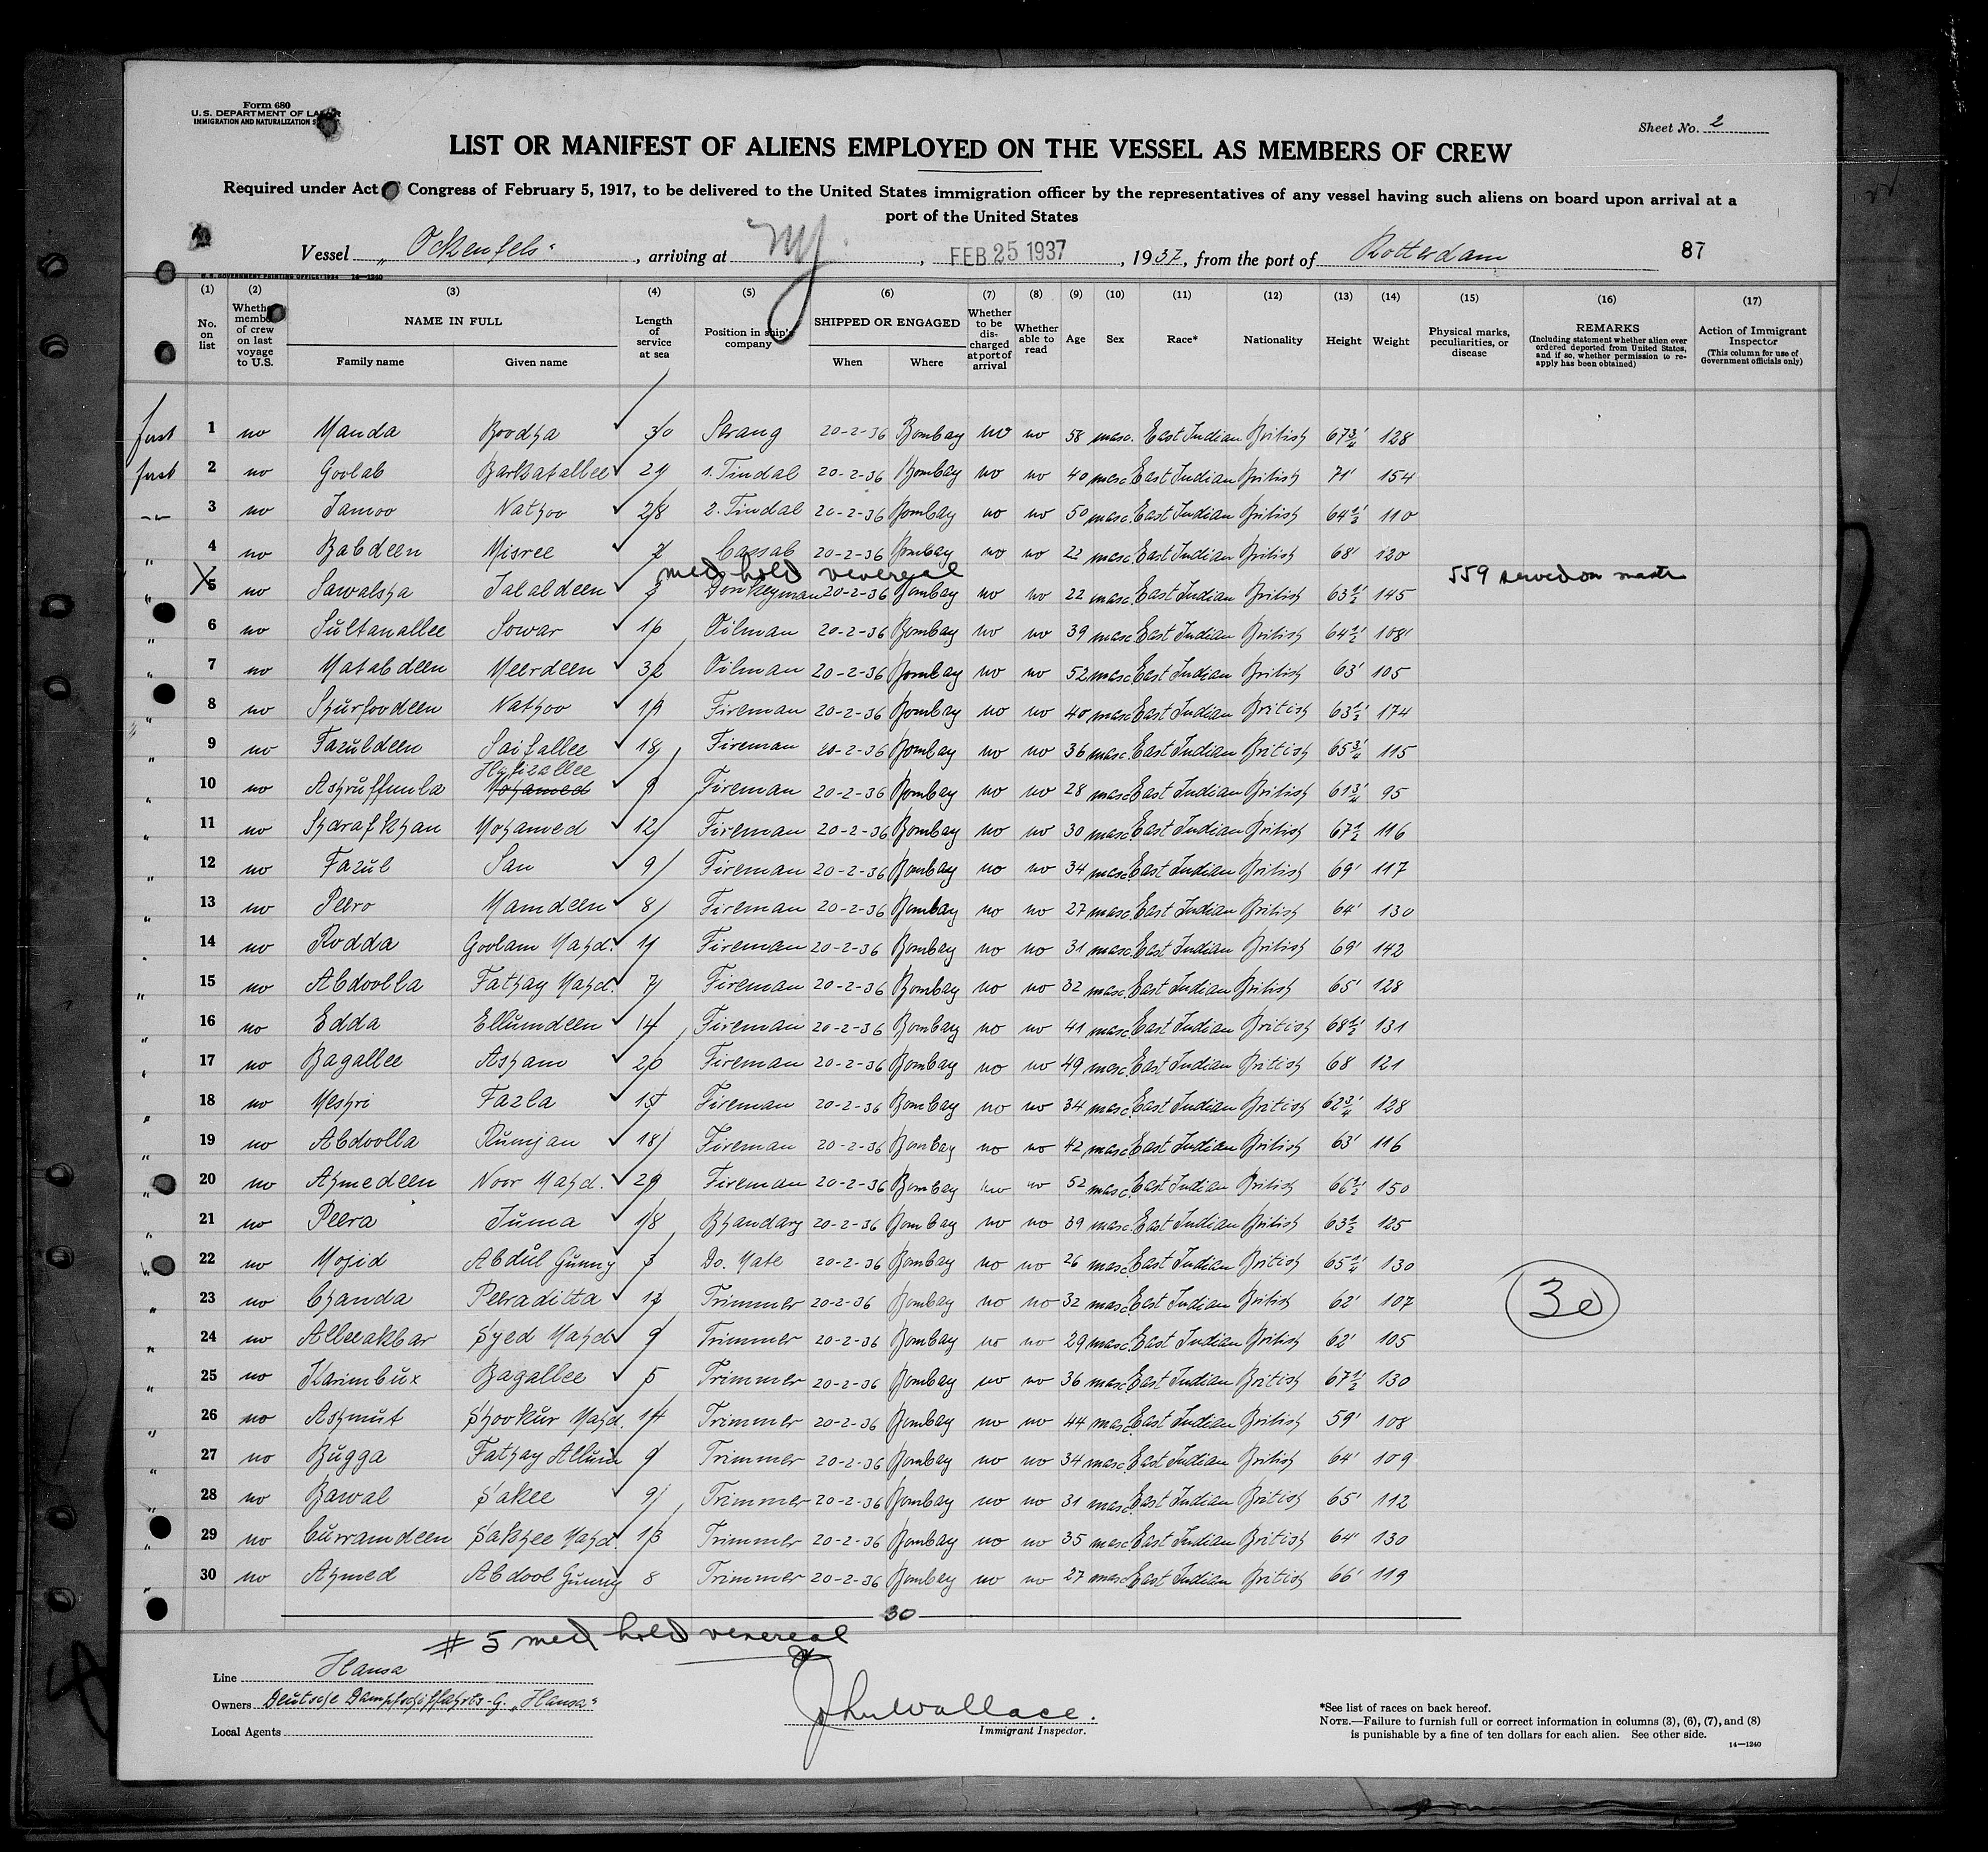 Form 680
U.S. DEPARTMENT OF LABOR
IMMIGRATION AND NATURALIZATION
Sheet No. 2
LIST OR MANIFEST OF ALIENS EMPLOYED ON THE VESSEL AS MEMBERS OF CREW
Required under Act of Congress of February 5, 1917, to be delivered to the United States immigration officer by the representatives of any vessel having such aliens on board upon arrival at a
port of the United States
Vessel „Ockenfels“, arriving at NY, FEB 25 1937, 1937, from the port of Rotterdam 87
U.S. GOVERNMENT PRINTING OFFICE: 1934 14—1240
(1) (2) (3) (4) (5) (6) (7) (8) (9) (10) (11) (12) (13) (14) (15) (16) (17)
No. on list
Whether member of crew on last voyage to U.S.
NAME IN FULL
Family name
Given name
Length of service at sea
Position in ship's company
SHIPPED OR ENGAGED
When
Where
Whether to be discharged at port of arrival
Whether able to read
Age
Sex
Race*
Nationality
Height
Weight
Physical marks, peculiarities, or disease
REMARKS
(Including statement whether alien ever ordered deported from United States, and if so, whether permission to reapply has been obtained)
Action of Immigrant Inspector
(This column for use of Government officials only)
first 1 no Manda Boodha 30 Serang 20-2-36 Bombay no no 58 masc. East Indian British 67¾' 128
first 2 no Goolab Barkatallee 29 1. Tindal 20-2-36 Bombay no no 40 masc. East Indian British 71' 154
3 no Jamoo Nathoo 28 2. Tindal 20-2-36 Bombay no no 50 masc. East Indian British 64½' 110
" 4 no Babdeen Misree 7 Cassab 20-2-36 Bombay no no 22 masc. East Indian British 68' 120
med hold venereal 559 served on master
" X5 no Sawalsha Jalaldeen Donkeyman 20-2-36 Bombay no no 22 masc. East Indian British 63½' 145
" 6 no Sultanallee Sowar 16 Oilman 20-2-36 Bombay no no 39 masc. East Indian British 64½' 108'
" 7 no Matabdeen Meerdeen 32 Oilman 20-2-36 Bombay no no 52 masc. East Indian British 63' 105
" 8 no Shurfoodeen Nathoo 19 Fireman 20-2-36 Bombay no no 40 masc. East Indian British 63½' 174
" 9 no Fazuldeen Saifallee 18 Fireman 20-2-36 Bombay no no 36 masc. East Indian British 65¾' 115
Hafizallee
" 10 no Ashruffumla Mohamed 9 Fireman 20-2-36 Bombay no no 28 masc. East Indian British 61¾' 95
" 11 no Sharafkhan Mohamed 12 Fireman 20-2-36 Bombay no no 30 masc. East Indian British 67½ 116
" 12 no Fazul San 9 Fireman 20-2-36 Bombay no no 34 masc. East Indian British 69' 117
" 13 no Peero Mamdeen 8 Fireman 20-2-36 Bombay no no 27 masc. East Indian British 64' 130
" 14 no Rodda Goolam Mahd. 19 Fireman 20-2-36 Bombay no no 31 masc. East Indian British 69' 142
" 15 no Abdoolla Fathay Mahd. 7 Fireman 20-2-36 Bombay no no 32 masc. East Indian British 65' 128
" 16 no Edda Ellumdeen 14 Fireman 20-2-36 Bombay no no 41 masc. East Indian British 68½' 131
" 17 no Bagallee Asham 20 Fireman 20-2-36 Bombay no no 49 masc. East Indian British 68 121
" 18 no Meshri Fazla 15 Fireman 20-2-36 Bombay no no 34 masc. East Indian British 62¾' 128
" 19 no Abdoolla Rumjan 18 Fireman 20-2-36 Bombay no no 42 masc. East Indian British 63' 116
" 20 no Ahmedeen Noor Mahd. 29 Fireman 20-2-36 Bombay no no 52 masc. East Indian British 66½' 150
" 21 no Peera Juma 18 Bhandary 20-2-36 Bombay no no 39 masc. East Indian British 63½ 125
" 22 no Mojid Abdul Gunny 3 Do. Mate 20-2-36 Bombay no no 26 masc. East Indian British 65¼' 130
" 23 no Chanda Peeraditta 12 Trimmer 20-2-36 Bombay no no 32 masc. East Indian British 62' 107
" 24 no Alleeakbar Syed Mahd 9 Trimmer 20-2-36 Bombay no no 29 masc. East Indian British 62' 105
" 25 no Karimbux Bagallee 5 Trimmer 20-2-36 Bombay no no 36 masc. East Indian British 67½' 130
" 26 no Ashmut Shookur Mahd. 14 Trimmer 20-2-36 Bombay no no 44 masc. East Indian British 59' 108
" 27 no Bugga Fathay Allum 9 Trimmer 20-2-36 Bombay no no 34 masc. East Indian British 64' 109
" 28 no Bawal Sakee 9 Trimmer 20-2-36 Bombay no no 31 masc. East Indian British 65' 112
" 29 no Curramdeen Sakhee Mahd. 13 Trimmer 20-2-36 Bombay no no 35 masc. East Indian British 64' 130
" 30 no Ahmed Abdool Gunny 8 Trimmer 20-2-36 Bombay no no 27 masc. East Indian British 66' 119
30
30
# 5 med hold venereal
Line Hansa
Owners Deutsche Dampfschiffahrts-G. „Hansa“
Local Agents
John Wallace.
Immigrant Inspector.
*See list of races on back hereof.
NOTE.—Failure to furnish full or correct information in columns (3), (6), (7), and (8)
is punishable by a fine of ten dollars for each alien. See other side.
14—1240